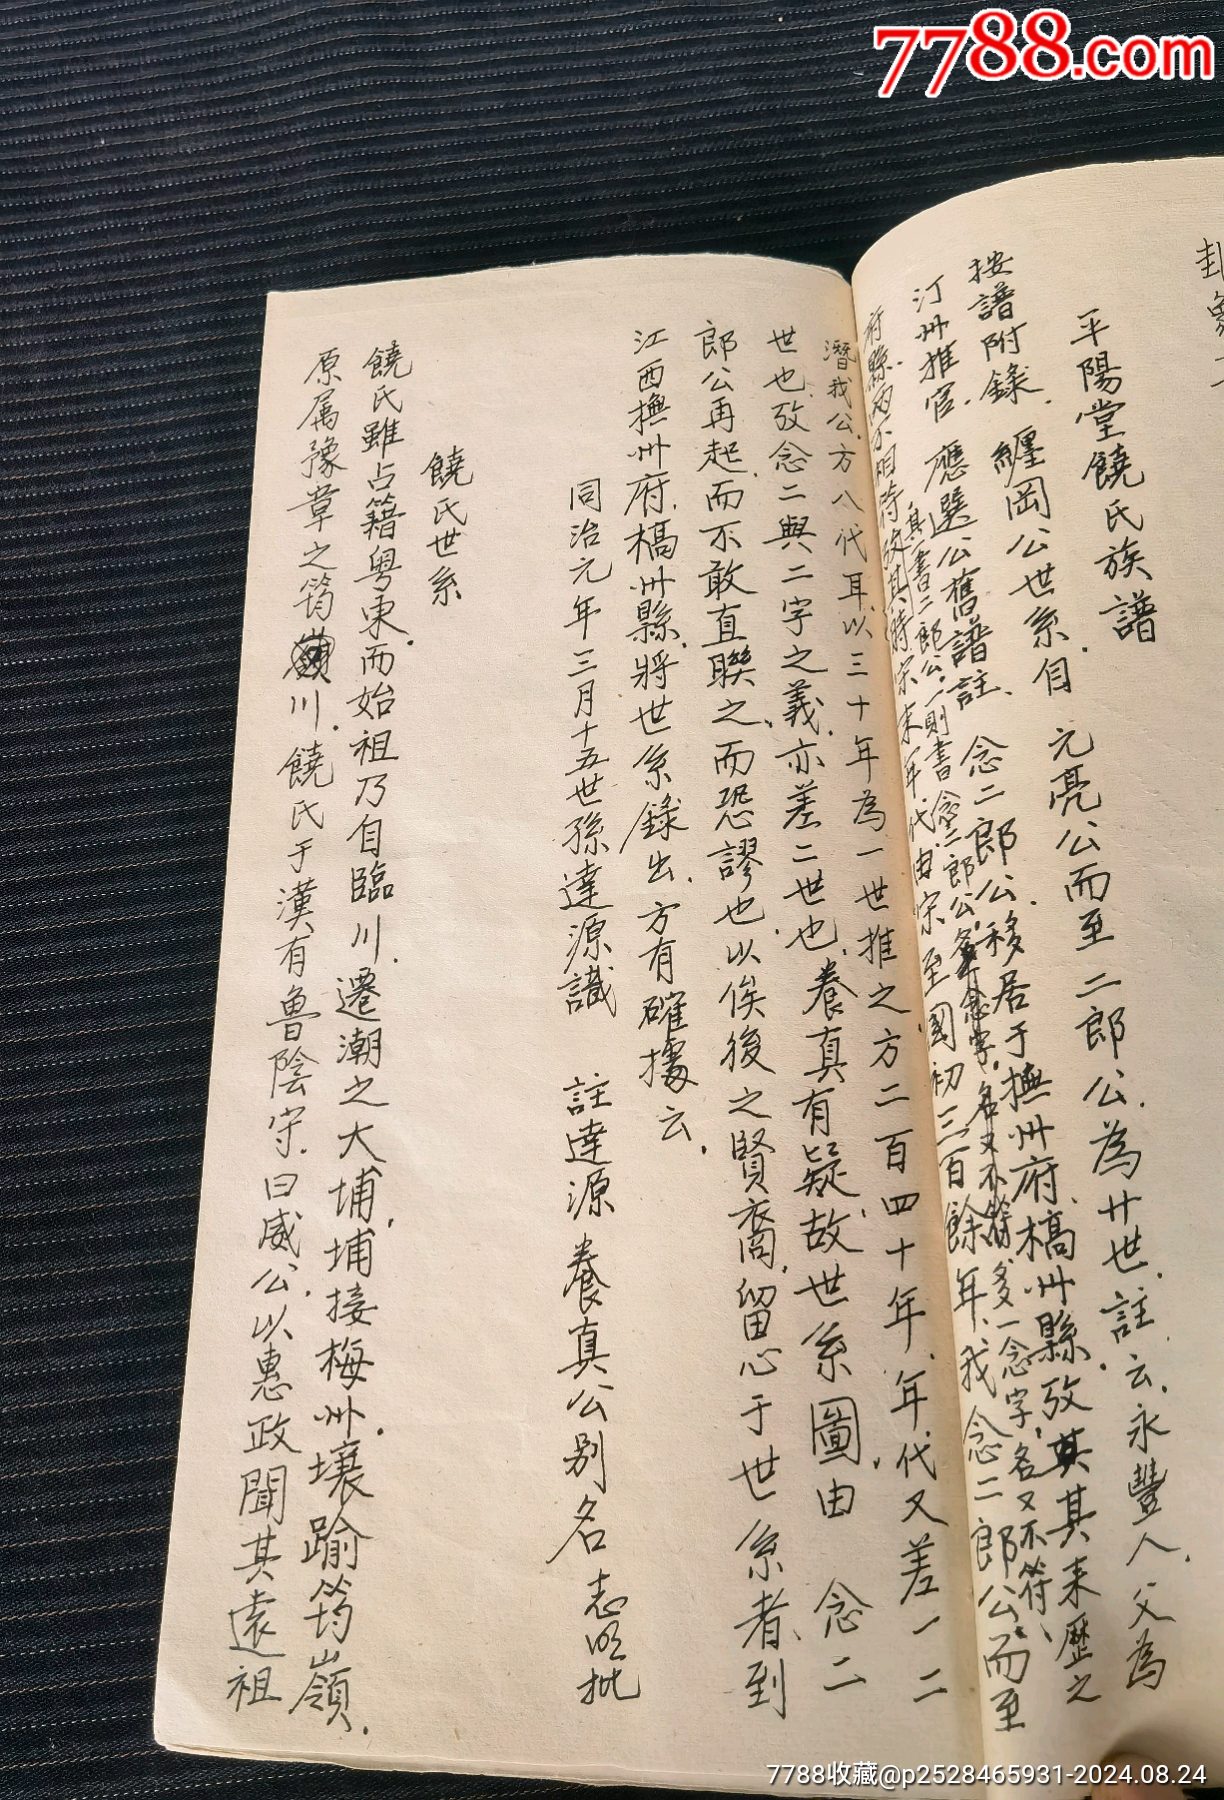 7788.com
平陽堂饒氏族譜
按譜附錄. 纏岡公世系自 元亮公而至二郎公.為廿世.註云.永豐人.父為
汀州推官. 應選公舊譜註. 念二郎公.移居于撫州府.槗州縣.攷其其來歷之
其書二郎公.一則書念二郎公.多一念字.名又不符
府縣.两不相符.攷其時宋末年代.由宋至國初三百餘年.我 念二郎公.而至
潛我公.方八代耳.以三十年為一世推之.方二百四十年.年代又差一二
世也.攷念二與二字之義.亦差二世也.養真有疑.故世系圖.由 念二
郎公再起.而不敢直聯之.而恐謬也.以俟後之賢裔.留心于世系者.到
江西撫州府.槗州縣.將世系錄出.方有確據云.
同治元年三月十五世孫達源識 註達源 養真公别名 志明批
饒氏世系
饒氏雖占籍粤東.而始祖乃自臨川.遷潮之大埔.埔接梅州.壤踰筠嶺.
原属豫章之筠川.饒氏于漢有魯陰守.曰威公.以惠政聞其遠祖
7788收藏@p2528465931-2024.08.24